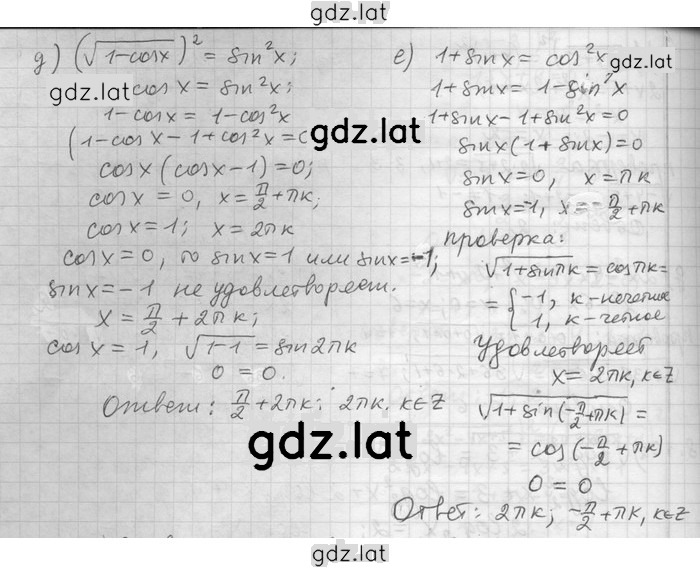 gdz.lat
д) (√(1-cosx))² = sin²x;
gdz.lat cosx = sin²x;
1-cosx = 1-cos²x
(1-cosx-1+cos²x=0
gdz.lat
cosx(cosx-1)=0;
cosx = 0, x = π/2 + πk;
cosx = 1; x = 2πk
cosx = 0, то sinx=1 или sinx=-1;
sinx = -1 не удовлетворяет.
x = π/2 + 2πk;
cosx = 1, √(1-1) = sin2πk
0 = 0.
Ответ: π/2 + 2πk; 2πk. k∈Z
gdz.lat
е) 1+sinx = cos²x
gdz.lat
1+sinx = 1-sin²x
1+sinx-1+sin²x=0
sinx(1+sinx)=0
sinx=0, x=πk
sinx=-1, x=-π/2+πk
Проверка:
√(1+sinπk) = cosπk=
= { -1, k-нечетное
1, k-четное
Удовлетворяет
x = 2πk, k∈Z
√(1+sin(-π/2+πk)) =
= cos(-π/2+πk)
0 = 0
Ответ: 2πk; -π/2+πk, k∈Z
gdz.lat